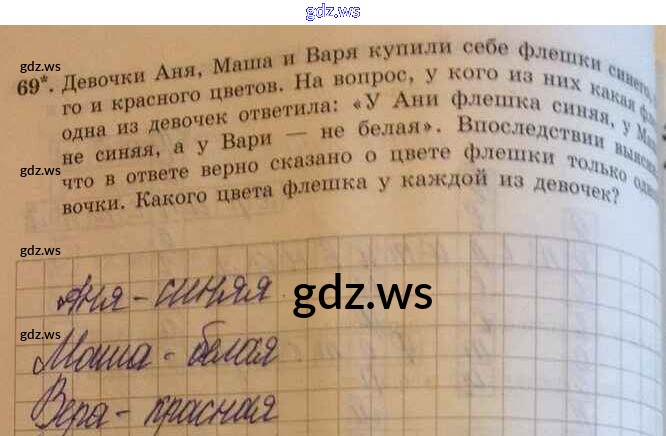 gdz.ws
69*. Девочки Аня, Маша и Варя купили себе флешки синего,
го и красного цветов. На вопрос, у кого из них какая
одна из девочек ответила: «У Ани флешка синяя, у
не синяя, а у Вари — не белая». Впоследствии
что в ответе верно сказано о цвете флешки только
вочки. Какого цвета флешка у каждой из девочек?
gdz.ws
gdz.ws
gdz.ws
gdz.ws
gdz.ws
gdz.ws
Аня - синяя
Маша - белая
Вера - красная